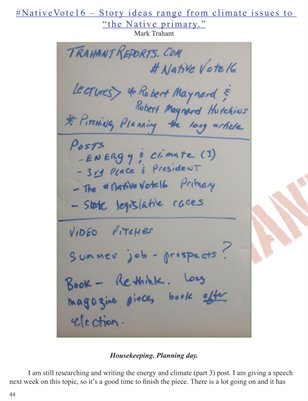 #NativeVote16 – Story ideas range from climate issues to
"the Native primary."
Mark Trahant
TRAHANTREPORTS.COM
#NativeVote16
Lectures> * Robert Maynard &
Robert Maynard Hutchins
* Pitching, Planning the long article
Posts
- ENERGY & climate (3)
- 3rd Place & President
- The #NativeVote16 Primary
- State legislative races
VIDEO PITCHES
Summer job - prospects?
Book - Rethink. Long
magazine pieces, book after
election.
Housekeeping. Planning day.
I am still researching and writing the energy and climate (part 3) post. I am giving a speech
next week on this topic, so it's a good time to finish the piece. There is a lot going on and it has
44